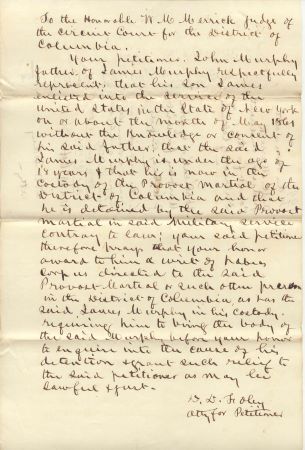 To the Honorable W. M. Merrick Judge of
the Circuit Court for the District of
Columbia.
Your petitioner John Murphy
father of James Murphy respectfully
represents that his son James
enlisted into the service of the
United States in the State of New York
on or about the month of May 1861
without the Knowledge or Consent of
his said father, that the said
James Murphy is under the age of
18 years & that he is now in the
custody of the Provost Martial of the
District of Columbia and that
he is detained by the said Provost
Martial in said Military Service
contrary to law; your said petitioner
therefore prays that your honor
award to him a writ of habeas
corpus directed to the said
Provost Martial or such other person
in the District of Columbia, as has the
said James Murphy in his custody,
requiring him to bring the body of
the said Murphy before your honor
to enquire into the cause of his
detention & grant such relief to
the said petitioner as may be
lawful & just.
D. D. Foley
Atty for Petitioner